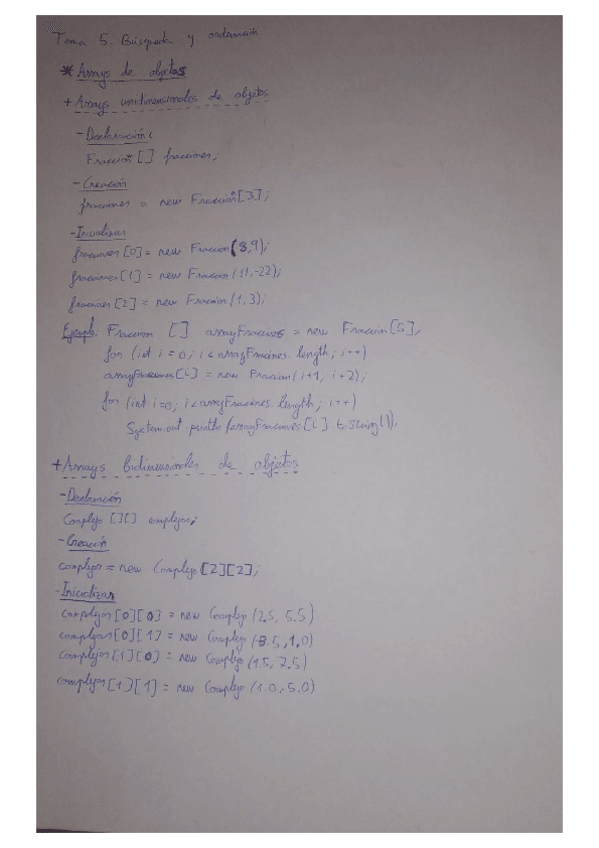 Tema 5. Búsqueda y ordenación
* Arrays de objetos
+ Arrays unidimensionales de objetos
- Declaración:
Fraccion [] fracciones;
- Creación
fracciones = new Fraccion[3];
- Inicializar
fracciones [0] = new Fraccion(8,9);
fracciones [1] = new Fraccion (11,-22);
fracciones [2] = new Fraccion (1, 3);
Ejemplo: Fraccion [] arrayFracciones = new Fraccion [5];
for (int i = 0; i < arrayFracciones. length; i++)
arrayFracciones [i] = new Fraccion (i+1, i+2);
for (int i=0; i < arrayFracciones. length; i++)
System.out.println (arrayFracciones [i]. toString());
+ Arrays bidimensionales de objetos
- Declaración
Complejo [][] complejos;
- Creación
complejos = new Complejo [2][2];
- Inicializar
complejos [0][0] = new Complejo (2.5, 5.5)
complejos [0][1] = new Complejo (-3.5, 1.0)
complejos [1][0] = new Complejo (1.5, 7.5)
complejos [1][1] = new Complejo (1.0, -5.0)